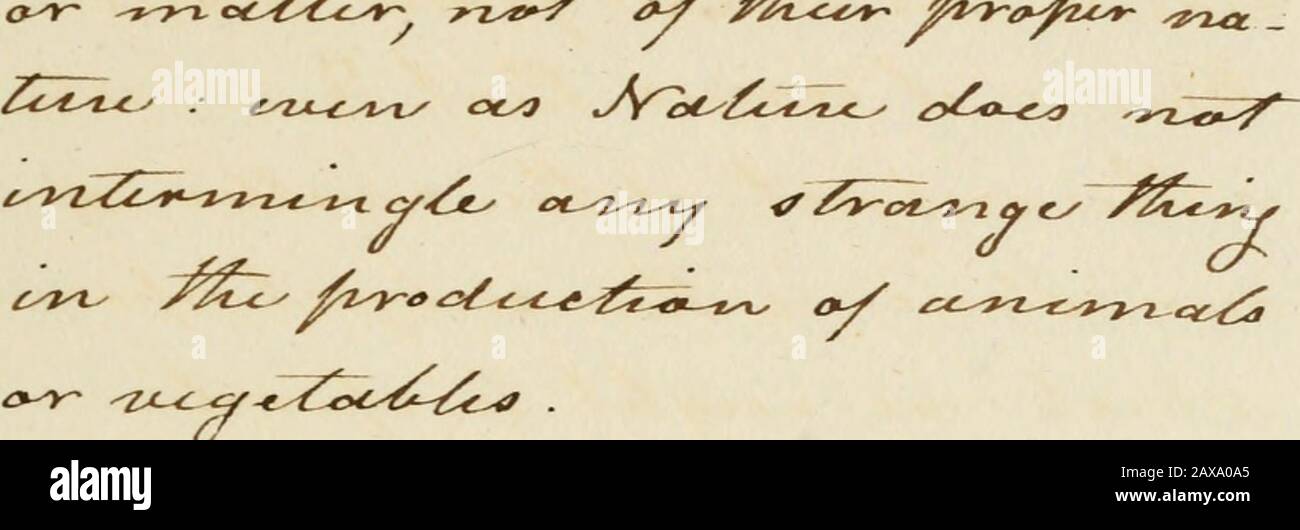 or matter, not of their proper na-
ture : even as Nature does not
intermingle any strange thing
in the production of animals
or vegetables.
alamy
Image ID: 2AXA0A5
www.alamy.com